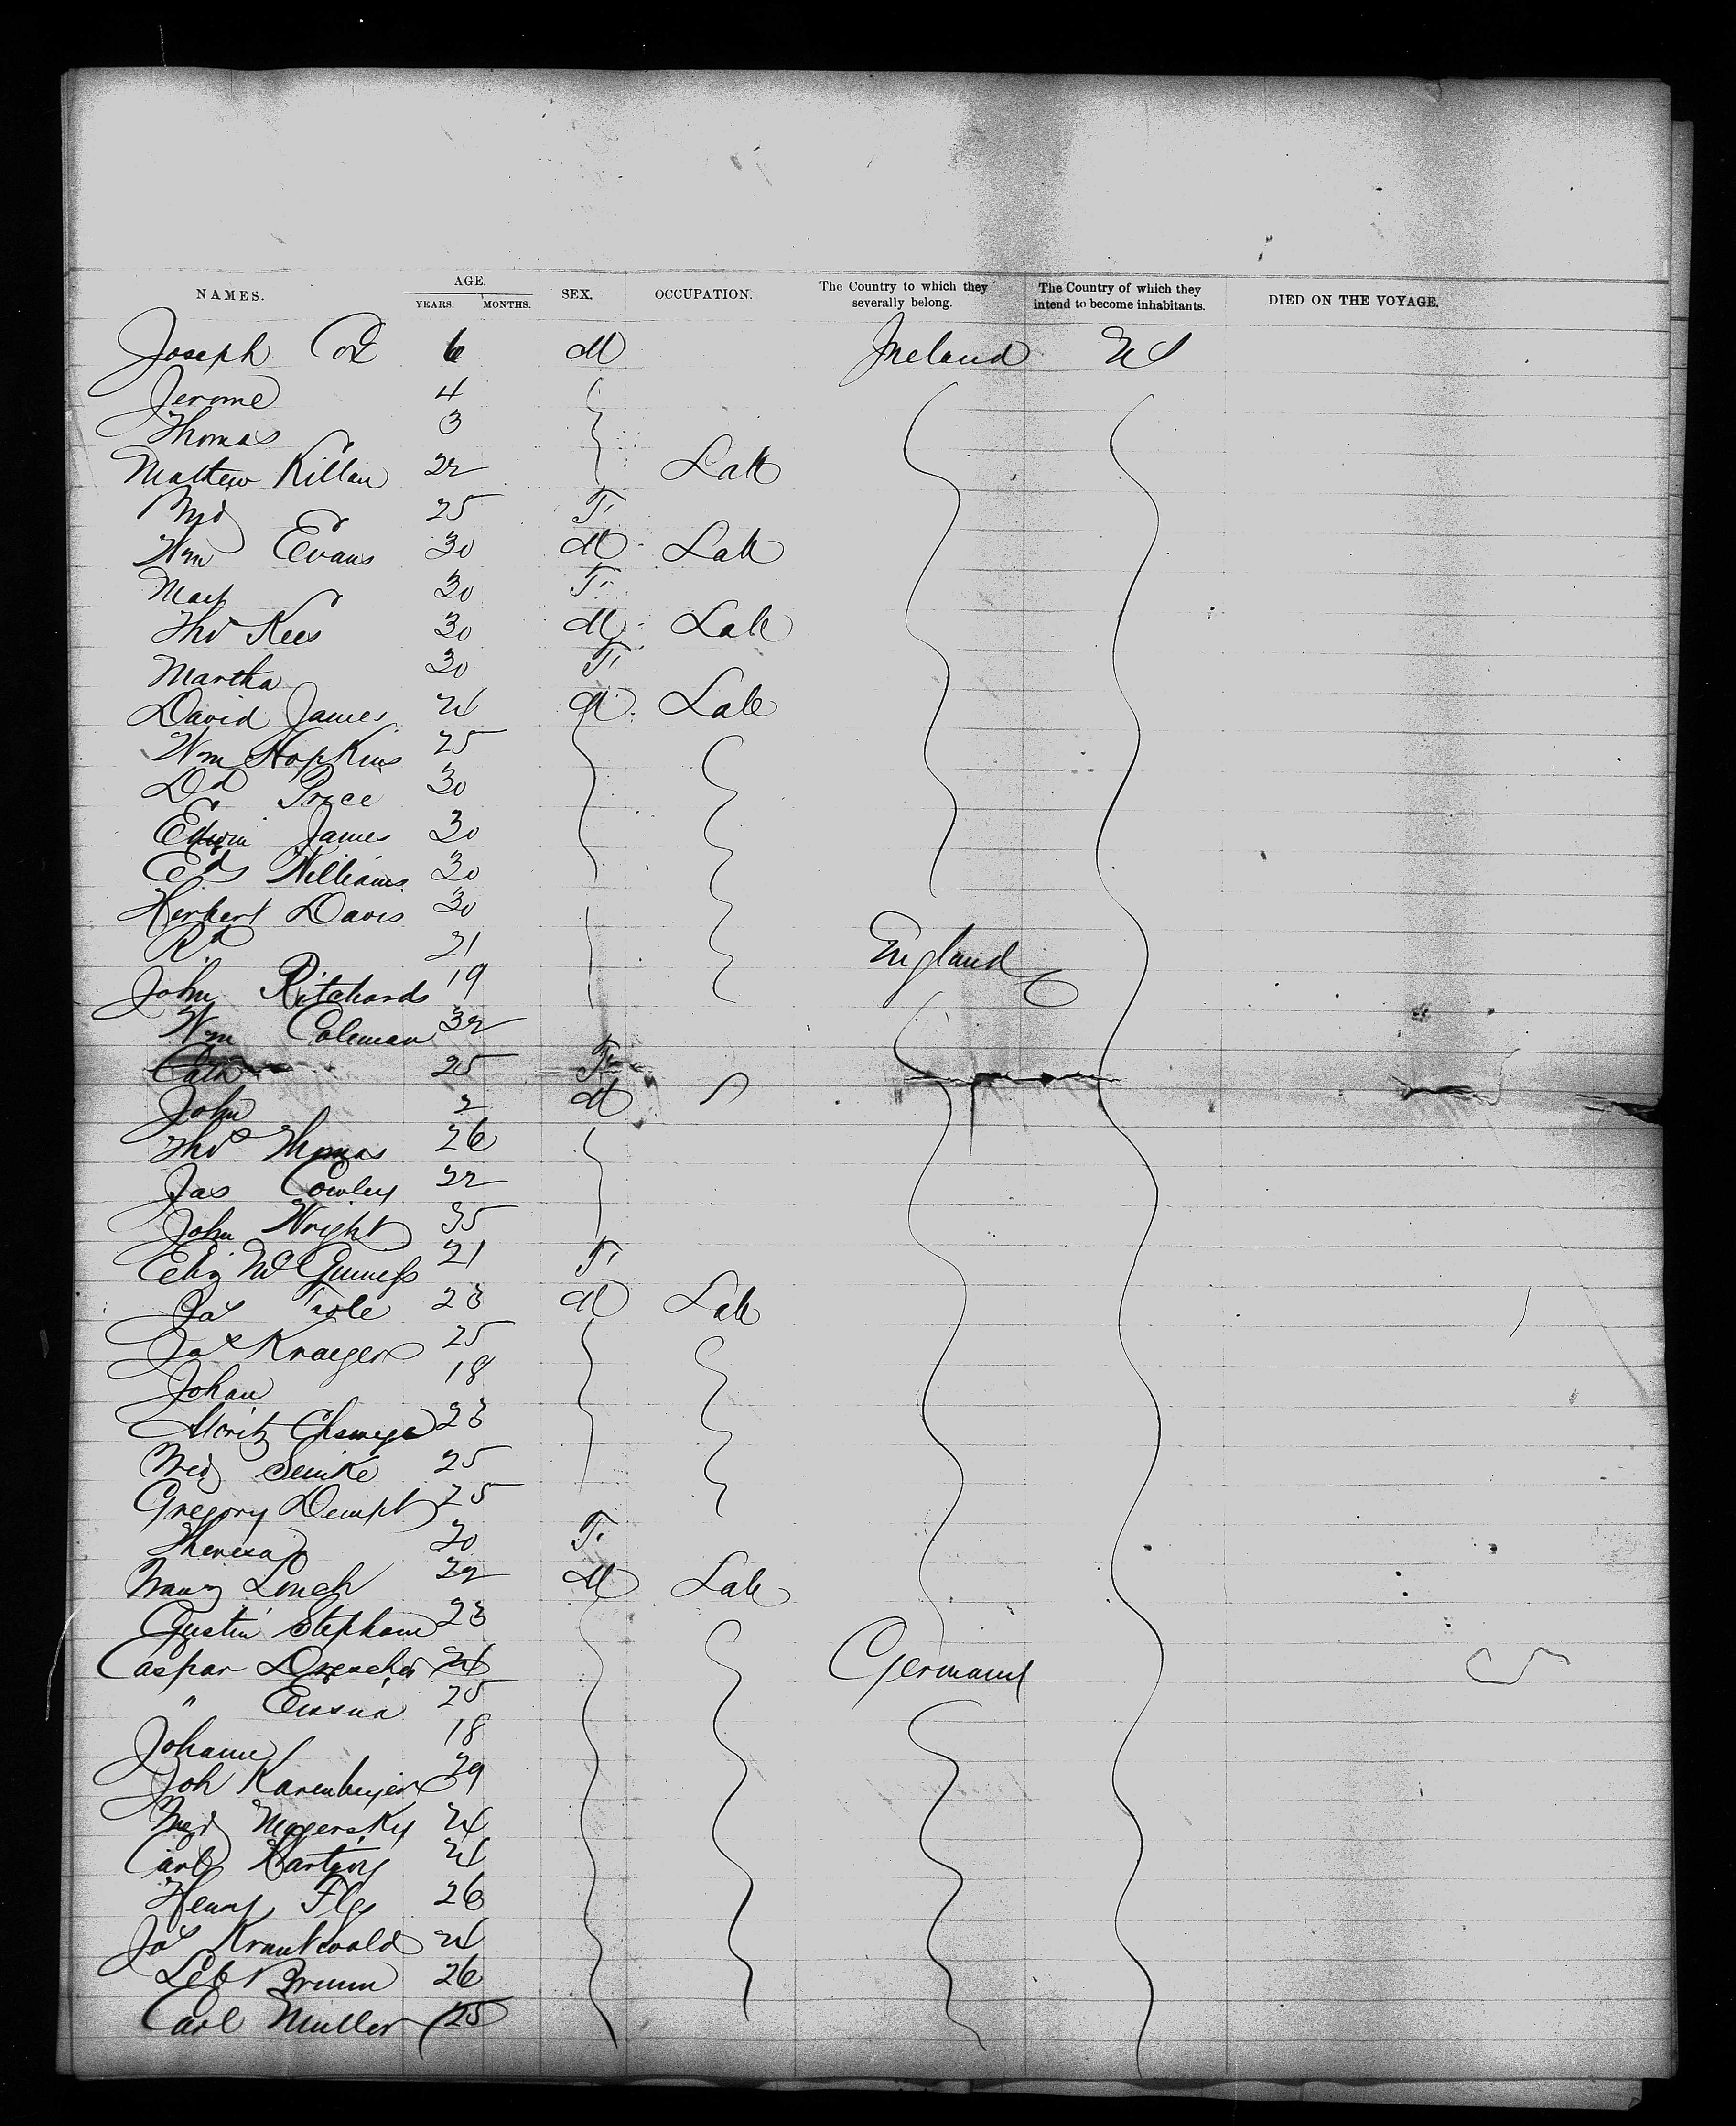 NAMES. AGE. YEARS. MONTHS. SEX. OCCUPATION. The Country to which they severally belong. The Country of which they intend to become inhabitants. DIED ON THE VOYAGE.
Joseph 6 M Ireland US
Jerome 4
Thomas 3
Mathew Killan 22 Lab
25 F
Wm Evans 30 M Lab
Mary 30 F
Thos Rees 30 M Lab
Martha 30 F
David James 24 M Lab
Wm Hopkins 25
Dd Price 30
Edwin James 30
Ed Williams 30
Herbert Davis 30
Rd 21 England
John Ritchards 19
Wm Coleman 32
Cath 25 F
John 2 M
Thos Thomas 26
Jas Cowley 22
John Wright 35
Eliz McGuiness 21 F
Jas 23 M Lab
Jos Kraeger 25
Johan 18
Moritz 23
Fred Semke 25
Gregory Dempt 25
Theresa 20 F
Franz Linck 22 M Lab
Gustin Stephan 23
Caspar Drescher 24 Germany
" 25
Johann 18
Joh Karenbeyer 29
Fred Magersky 24
Carl Hartwig 24
Henry 26
Jos Krautwald 24
Leb Brunn 26
Carl Muller 25